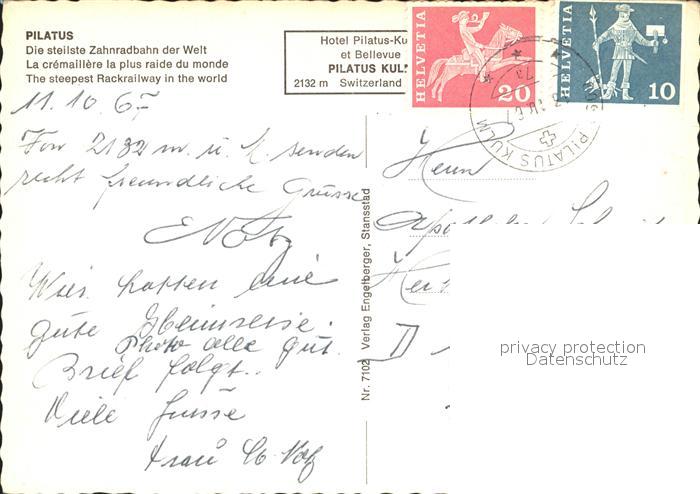 PILATUS
Die steilste Zahnradbahn der Welt
La crémaillère la plus raide du monde
The steepest Rackrailway in the world
Hotel Pilatus-Ku
et Bellevue
PILATUS KUL
2132 m Switzerland
HELVETIA
20
HELVETIA
10
PILATUS KULM
11. 10. 67
Von 2132 m. ü. M. senden
recht freundliche Grüsse
E Notz
Wir hatten eine
gute Heimreise.
Photo alle gut.
Brief folgt..
Viele Grüsse
Frau E. Notz
Nr. 7102 Verlag Engelberger, Stansstad
Herrn
D
privacy protection
Datenschutz